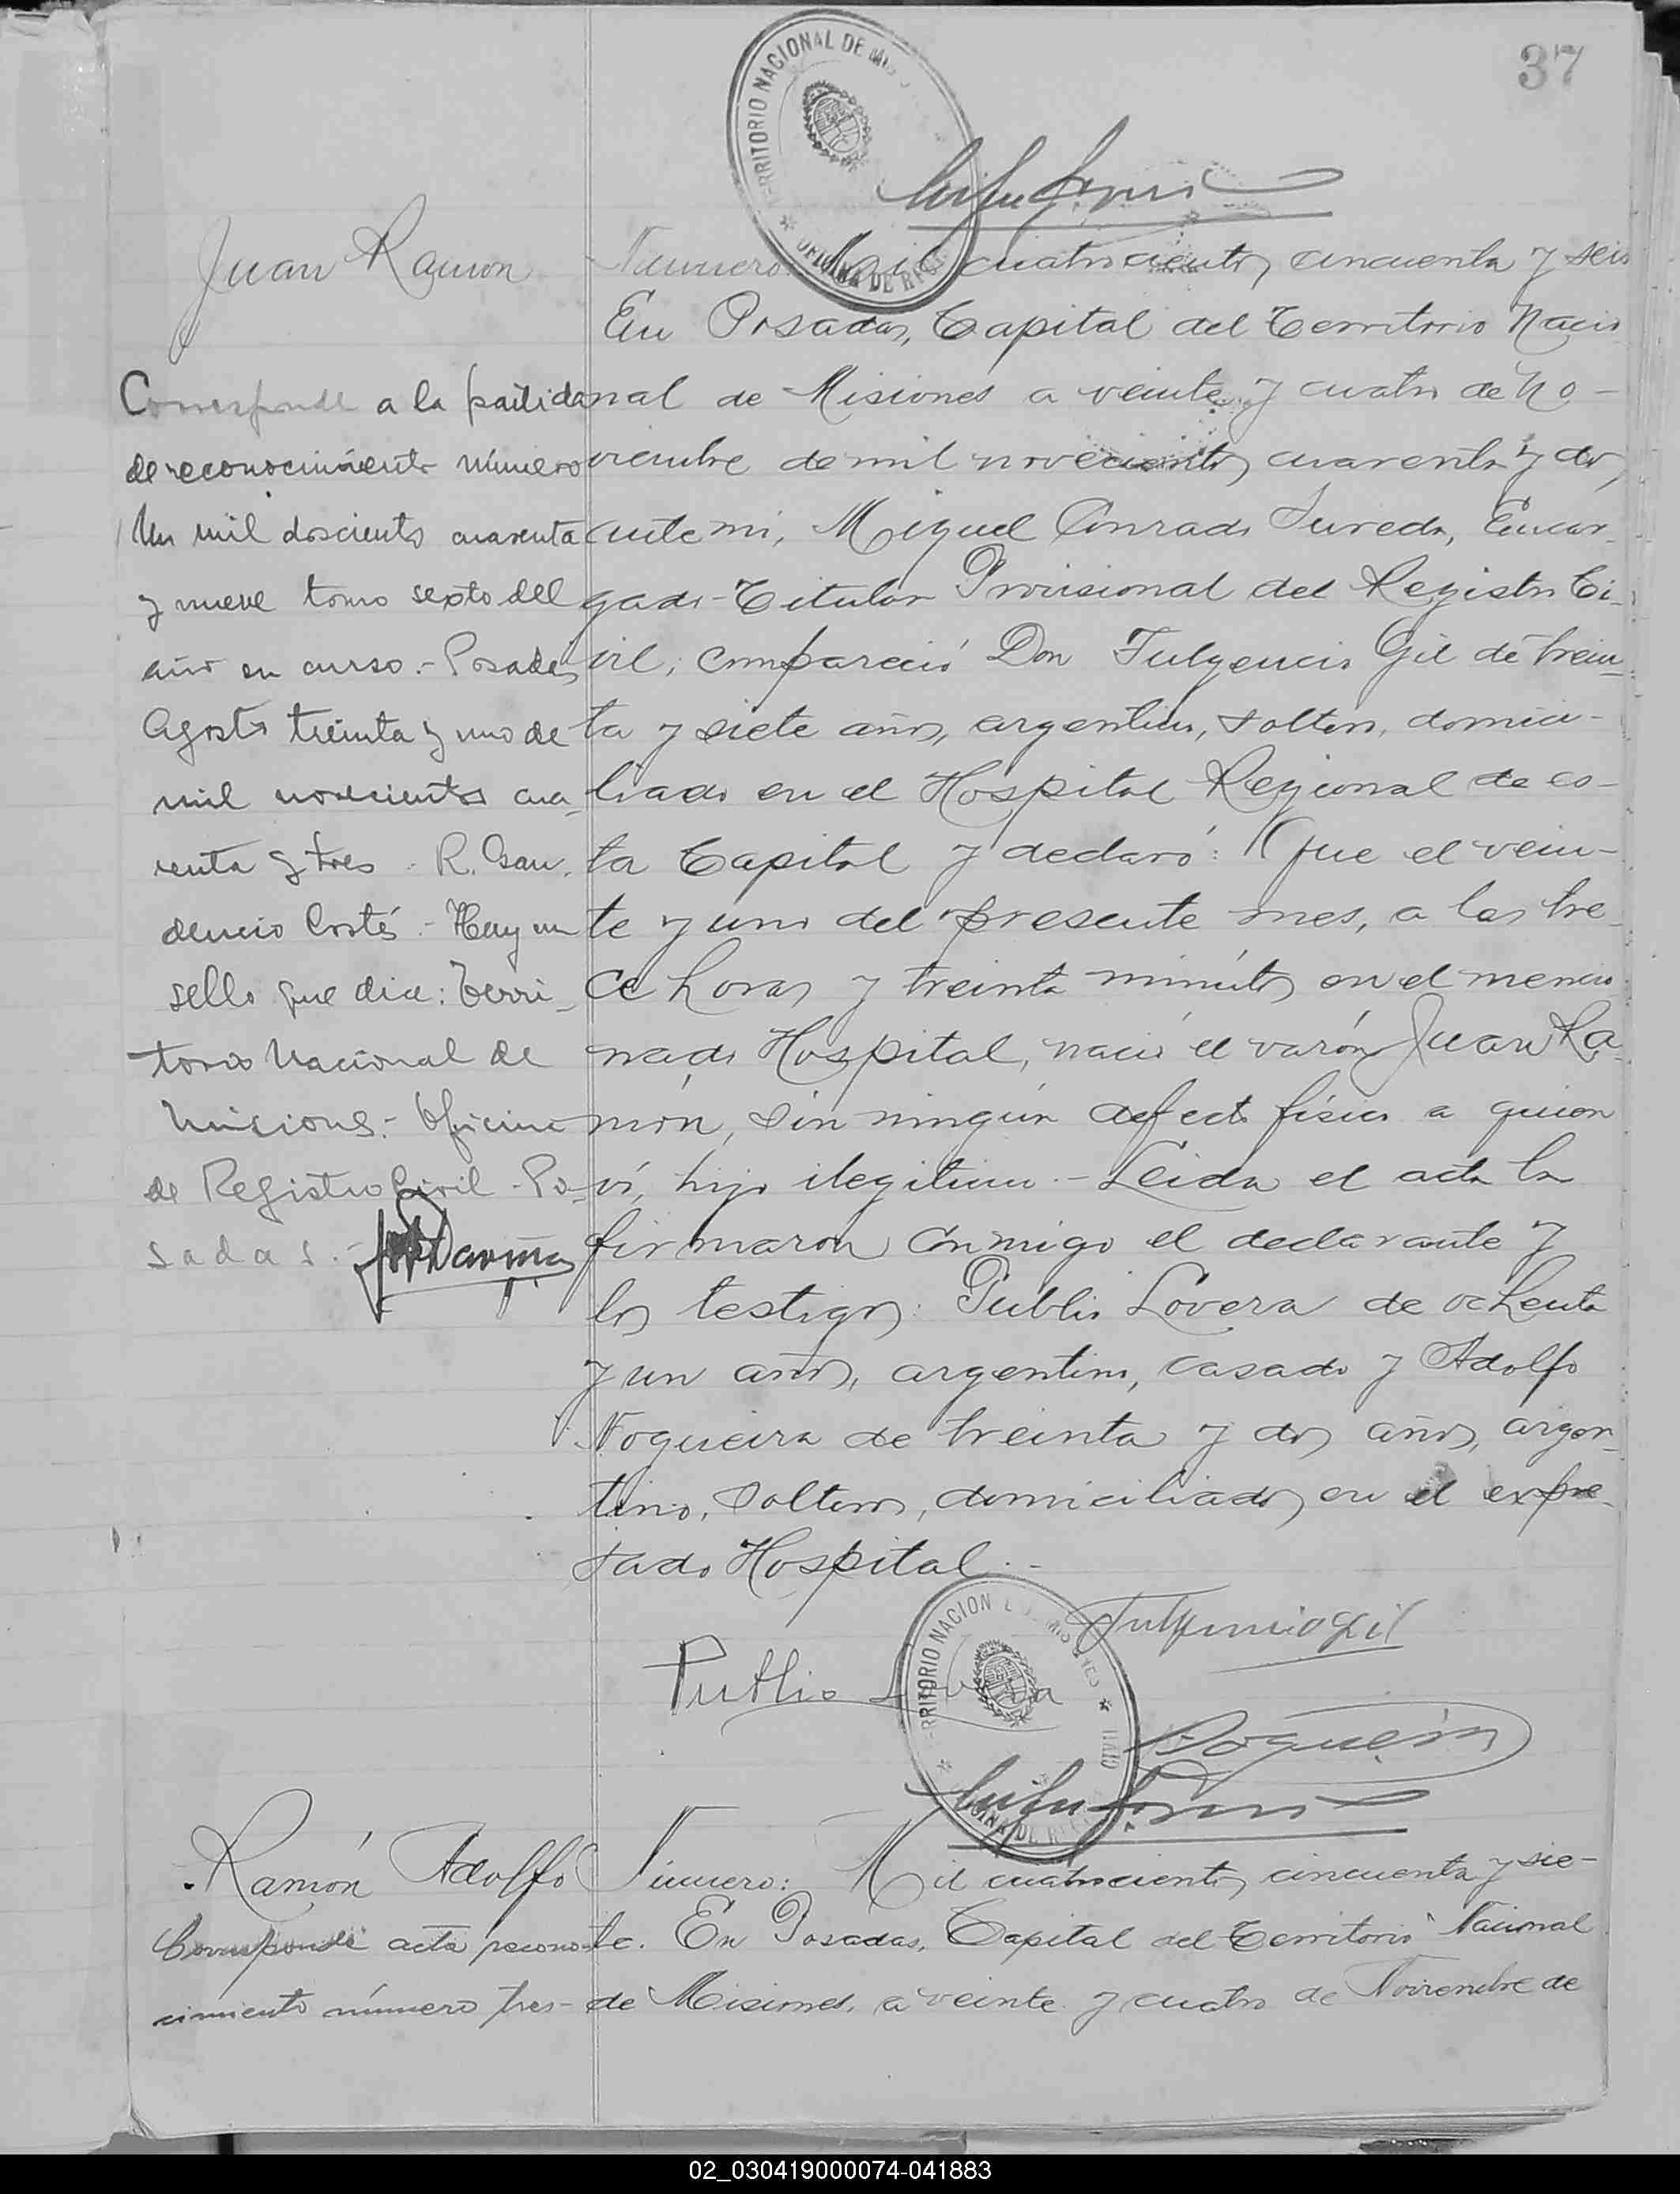 37
TERRITORIO NACIONAL DE
OFICINA DE
Juan Ramon
Corresponde a la partida
de reconocimiento número
Un mil doscientos cuarenta
y nueve tomo sexto del
año en curso.- Posadas
Agosto treinta y uno de
mil novecientos cua_
renta y tres - R. Gau_
dencio Cortés - Hay un
sello que dice: Terri_
torio Nacional de
Misiones.- Oficina
de Registro Civil - Po-
sadas.-
Número: Mil cuatrocientos cincuenta y seis
En Posadas, Capital del Territorio Nacio
nal de Misiones a veinte y cuatro de No-
viembre de mil novecientos cuarenta y dos,
ante mi, Miguel Conrado Sureda, Encar_
gado-Titular Provisional del Registro Ci_
vil, compareció Don Fulgencio Gil de trein_
ta y siete años, argentino, soltero, domici-
liado en el Hospital Regional de es-
ta Capital y declaró: Que el vein-
te y uno del presente mes, a las tre_
ce horas y treinta minutos en el mencio
nado Hospital, nació el varón Juan Ra_
món, sin ningún defecto físico a quien
ví, hijo ilegitimo.- Leida el acta la
firmaron conmigo el declarante y
los testigos: Publio Lovera de ochenta
y un años, argentino, casado y Adolfo
Nogueira de treinta y dos años, argen_
tino, soltero, domiciliados en el expre_
sado Hospital.-
Fulgencio Gil
Publio Lovera
TERRITORIO NACION
CIVIL
Nogueira
Ramón Adolfo
Corresponde acta recono-
cimiento número tres-
Número: Mil cuatrocientos cincuenta y sie-
te. En Posadas, Capital del Territorio Nacional
de Misiones, a veinte y cuatro de Noviembre de
02_030419000074-041883